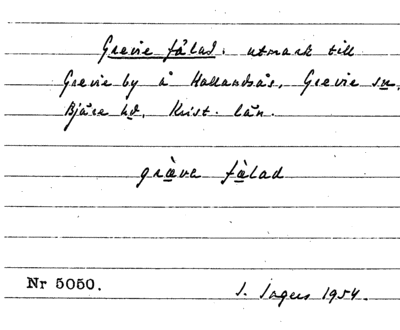 Grevie fålad: utmark till
Grevie by å Hallandsås, Grevie sn,
Bjäre hd, Krist. län.
græve fàlad
Nr 5050.
J. Sagers 1954.